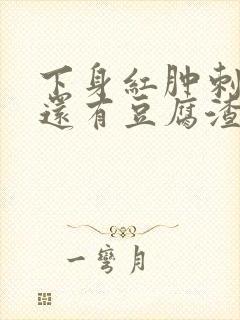 下身紅肿刺
還有豆腐渣
一彎月